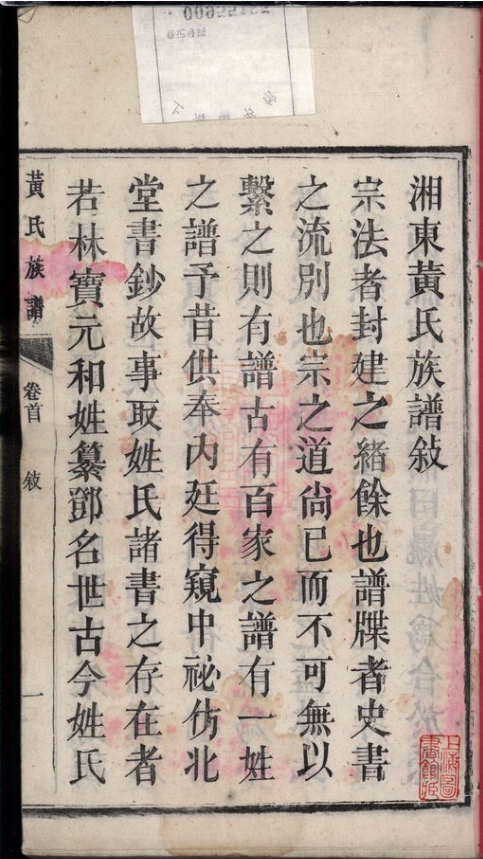 湘東黃氏族譜敍
宗法者封建之緒餘也譜牒者史書
之流別也宗之道尙已而不可無以
繫之則有譜古有百家之譜有一姓
之譜予昔供奉內廷得窺中祕仿北
堂書鈔故事取姓氏諸書之存在者
若林寶元和姓纂鄧名世古今姓氏
黃氏族譜
卷首
敍
一
上海圖
書館藏